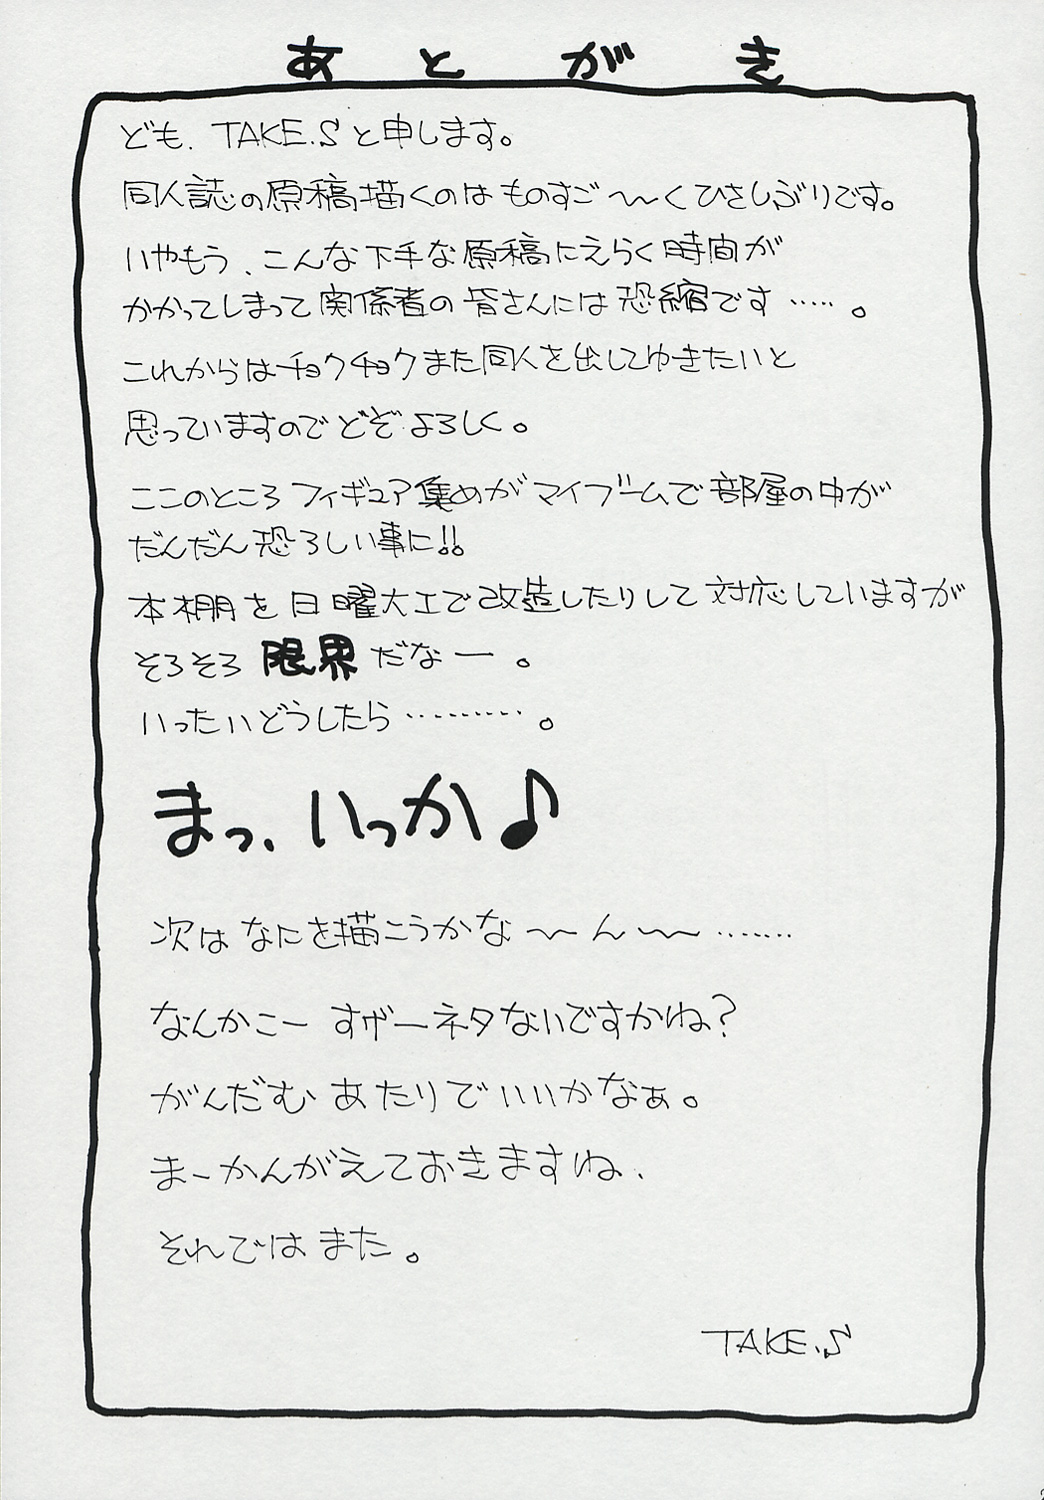 あとがき
ども、TAKE.Sと申します。
同人誌の原稿描くのはものすご〜くひさしぶりです。
いやもう、こんな下手な原稿にえらく時間が
かかってしまって関係者の皆さんには恐縮です……。
これからはチョクチョクまた同人を出してゆきたいと
思っていますのでどぞよろしく。
ここのところフィギュア集めがマイブームで部屋の中が
だんだん恐ろしい事に!!
本棚を日曜大工で改造したりして対応していますが
そろそろ限界だなー。
いったいどうしたら………。
まっ、いっか♪
次はなにを描こうかな〜ん〜……
なんかこー すげーネタないですかね?
がんだむあたりでいいかなぁ。
まーかんがえておきますね、
それではまた。
TAKE.S